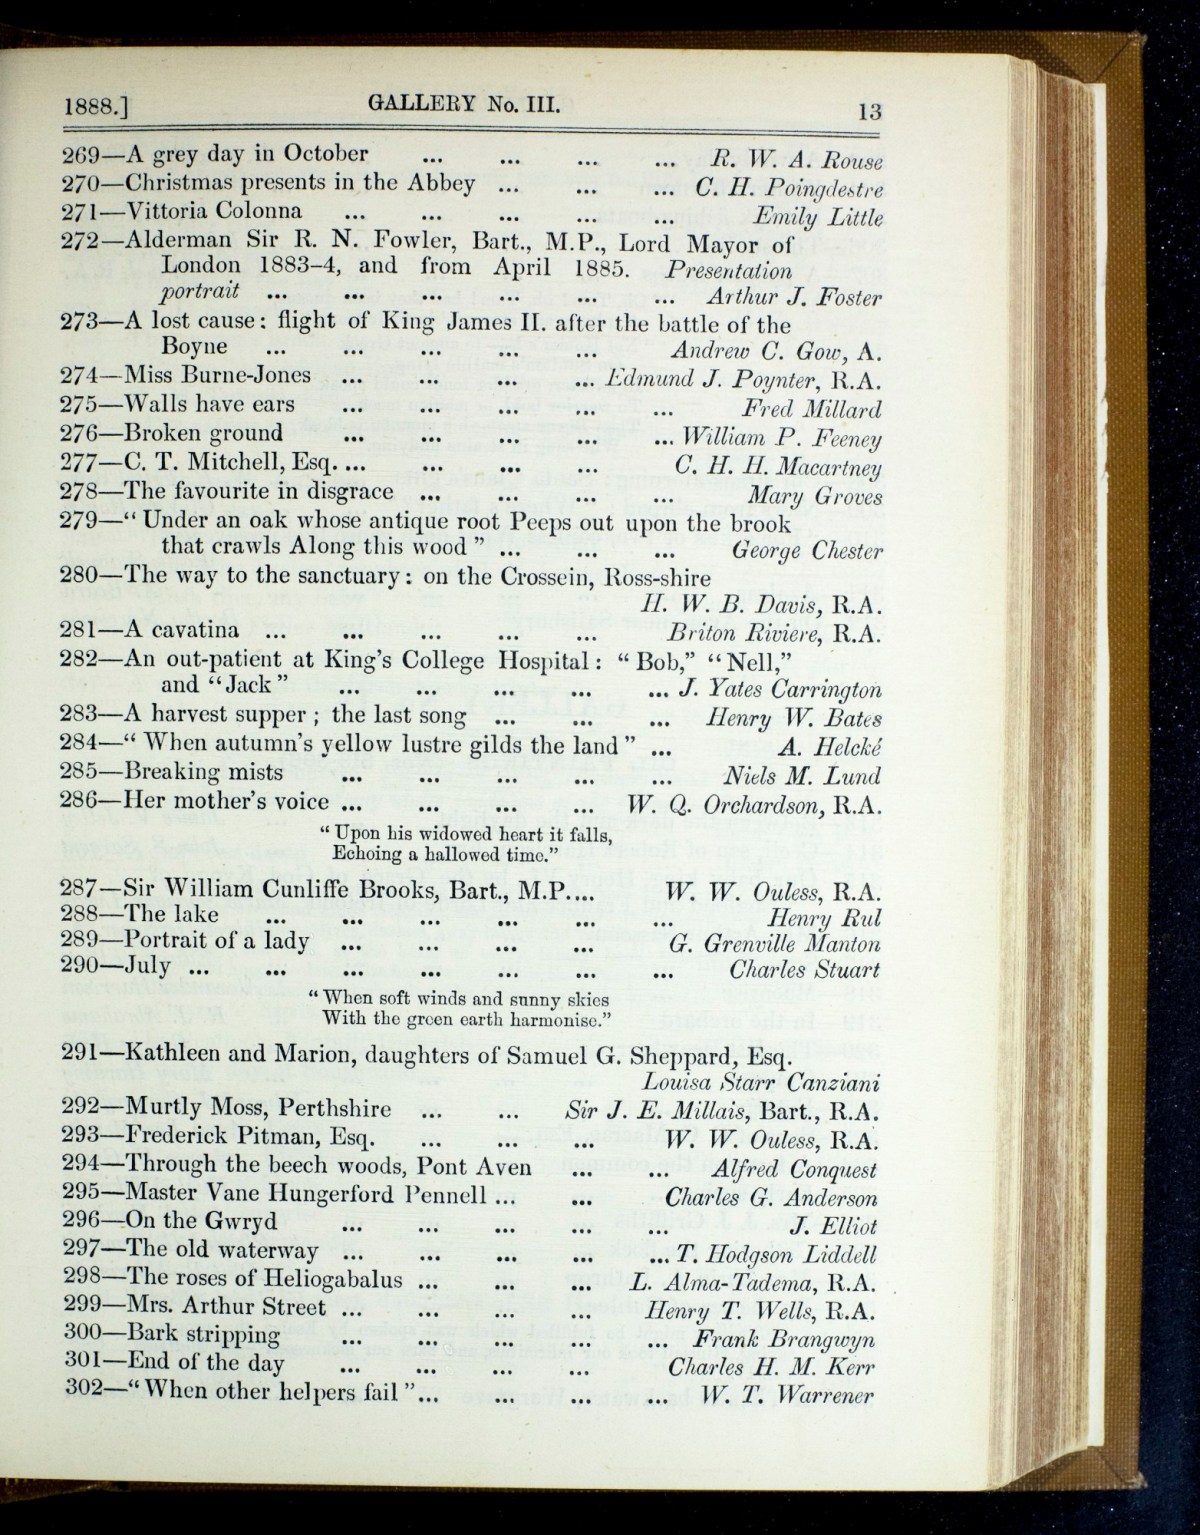 1888.] GALLERY No. III. 13
269—A grey day in October ... ... ... ... R. W. A. Rouse
270—Christmas presents in the Abbey ... ... ... C. H. Poingdestre
271—Vittoria Colonna ... ... ... ... ... Emily Little
272—Alderman Sir R. N. Fowler, Bart., M.P., Lord Mayor of
London 1883–4, and from April 1885. Presentation
portrait ... ... ... ... ... ... Arthur J. Foster
273—A lost cause: flight of King James II. after the battle of the
Boyne ... ... ... ... ... Andrew C. Gow, A.
274—Miss Burne-Jones ... ... ... ... Edmund J. Poynter, R.A.
275—Walls have ears ... ... ... ... ... Fred Millard
276—Broken ground ... ... ... ... ... William P. Feeney
277—C. T. Mitchell, Esq. ... ... ... ... C. H. H. Macartney
278—The favourite in disgrace ... ... ... ... Mary Groves
279—“Under an oak whose antique root Peeps out upon the brook
that crawls Along this wood” ... ... ... George Chester
280—The way to the sanctuary: on the Crossein, Ross-shire
H. W. B. Davis, R.A.
281—A cavatina ... ... ... ... ... Briton Riviere, R.A.
282—An out-patient at King’s College Hospital: “Bob,” “Nell,”
and “Jack” ... ... ... ... ... J. Yates Carrington
283—A harvest supper; the last song ... ... ... Henry W. Bates
284—“When autumn’s yellow lustre gilds the land” ... A. Helcké
285—Breaking mists ... ... ... ... ... Niels M. Lund
286—Her mother’s voice ... ... ... ... W. Q. Orchardson, R.A.
“Upon his widowed heart it falls,
Echoing a hallowed time.”
287—Sir William Cunliffe Brooks, Bart., M.P.... W. W. Ouless, R.A.
288—The lake ... ... ... ... ... ... Henry Rul
289—Portrait of a lady ... ... ... ... G. Grenville Manton
290—July ... ... ... ... ... ... ... Charles Stuart
“When soft winds and sunny skies
With the green earth harmonise.”
291—Kathleen and Marion, daughters of Samuel G. Sheppard, Esq.
Louisa Starr Canziani
292—Murtly Moss, Perthshire ... ... Sir J. E. Millais, Bart., R.A.
293—Frederick Pitman, Esq. ... ... ... W. W. Ouless, R.A.
294—Through the beech woods, Pont Aven ... ... Alfred Conquest
295—Master Vane Hungerford Pennell ... ... Charles G. Anderson
296—On the Gwryd ... ... ... ... ... J. Elliot
297—The old waterway ... ... ... ... ... T. Hodgson Liddell
298—The roses of Heliogabalus ... ... ... L. Alma-Tadema, R.A.
299—Mrs. Arthur Street ... ... ... ... Henry T. Wells, R.A.
300—Bark stripping ... ... ... ... ... Frank Brangwyn
301—End of the day ... ... ... ... Charles H. M. Kerr
302—“When other helpers fail”... ... ... ... W. T. Warrener